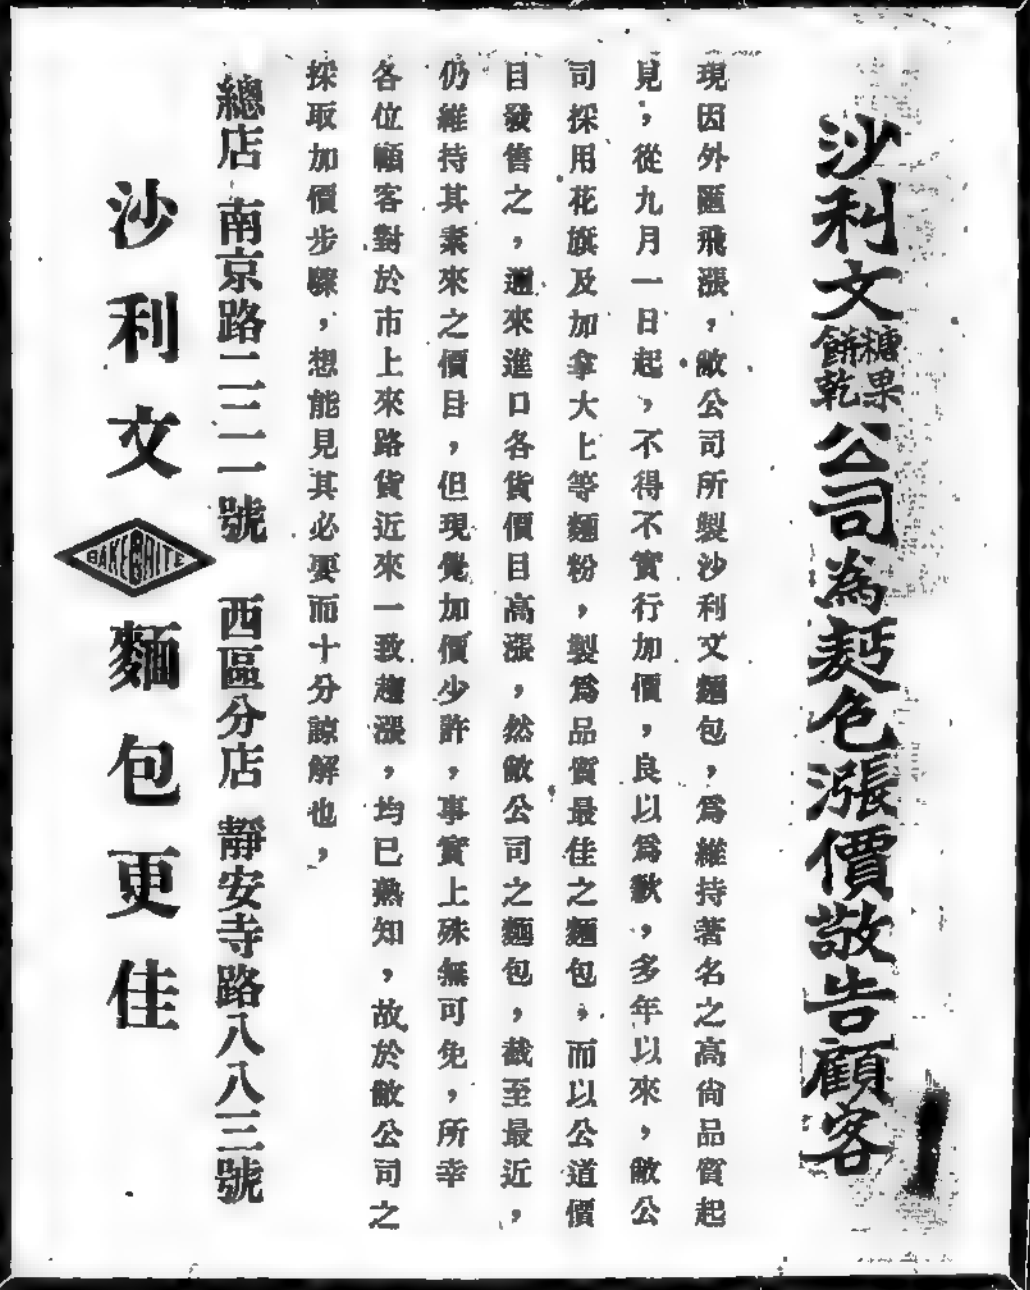 沙利文糖果餅乾公司為麪包漲價敬告顧客
現因外匯飛漲，敝公司所製沙利文麵包，爲維持著名之高尙品質起
見，從九月一日起，不得不實行加價，良以爲歉，多年以來，敝公
司採用花旗及加拿大上等麵粉，製爲品質最佳之麵包，而以公道價
目發售之，邇來進口各貨價目高漲，然敝公司之麵包，截至最近，
仍維持其素來之價目，但現覺加價少許，事實上殊無可免，所幸
各位顧客對於市上來路貨近來一致趨漲，均已熟知，故於敝公司之
採取加價步驟，想能見其必要而十分諒解也，
總店 南京路二二一號 西區分店 靜安寺路八八三號
沙利文 BAKERITE 麵包更佳